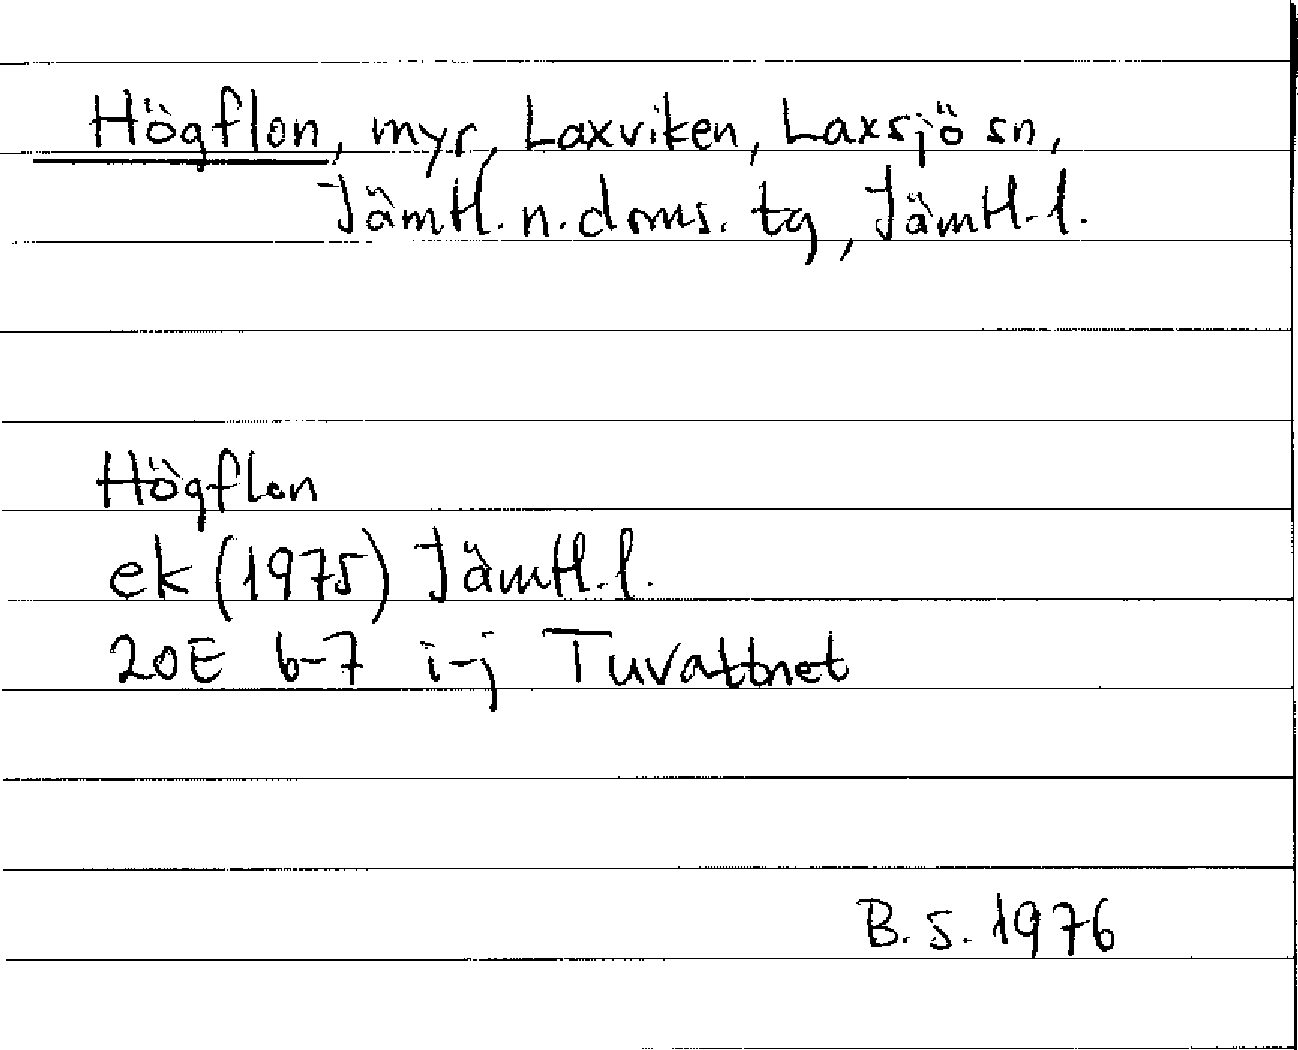 Högflon, myr, Laxviken, Laxsjö sn,
Jämtl. n. doms. tg, Jämtl. l.
Högflon
ek (1975) Jämtl. l.
20E 6-7 i-j Tuvattnet
B. S. 1976